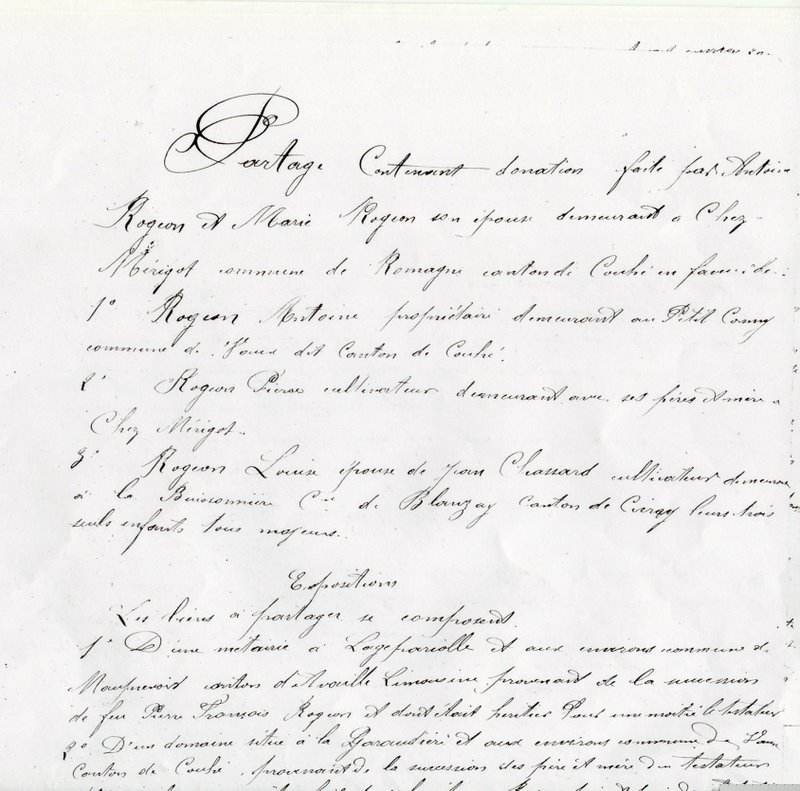 Partage Contenant donation faite par Antoine
Rogeon et Marie Rogeon son épouse demeurant à Chez
Mérigot commune de Romagne canton de Couhé en faveur de
1° Rogeon Antoine propriétaire demeurant au Petit
commune de Vaux dit Canton de Couhé.
2° Rogeon Pierre cultivateur demeurant avec ses pères et mère à
Chez Mérigot.
3° Rogeon Louise épouse de Jean Chassard cultivateur demeurant
à la Buissonnière Cne de Blanzay Canton de Civray leurs trois
seuls enfants tous majeurs.
Expositions
Les biens à partager se composent
1° D'une métairie à Lageariolle et aux environs commune de
Mauprevoir canton d'Availle Limousine, provenant de la succession
de feu Pierre François Rogeon et dont était héritier Pour une moitié le testateur
2° D'un domaine situé à la Garaudière et aux environs commune de Vaux
Canton de Couhé, provenant de la succession des père et mère du testateur